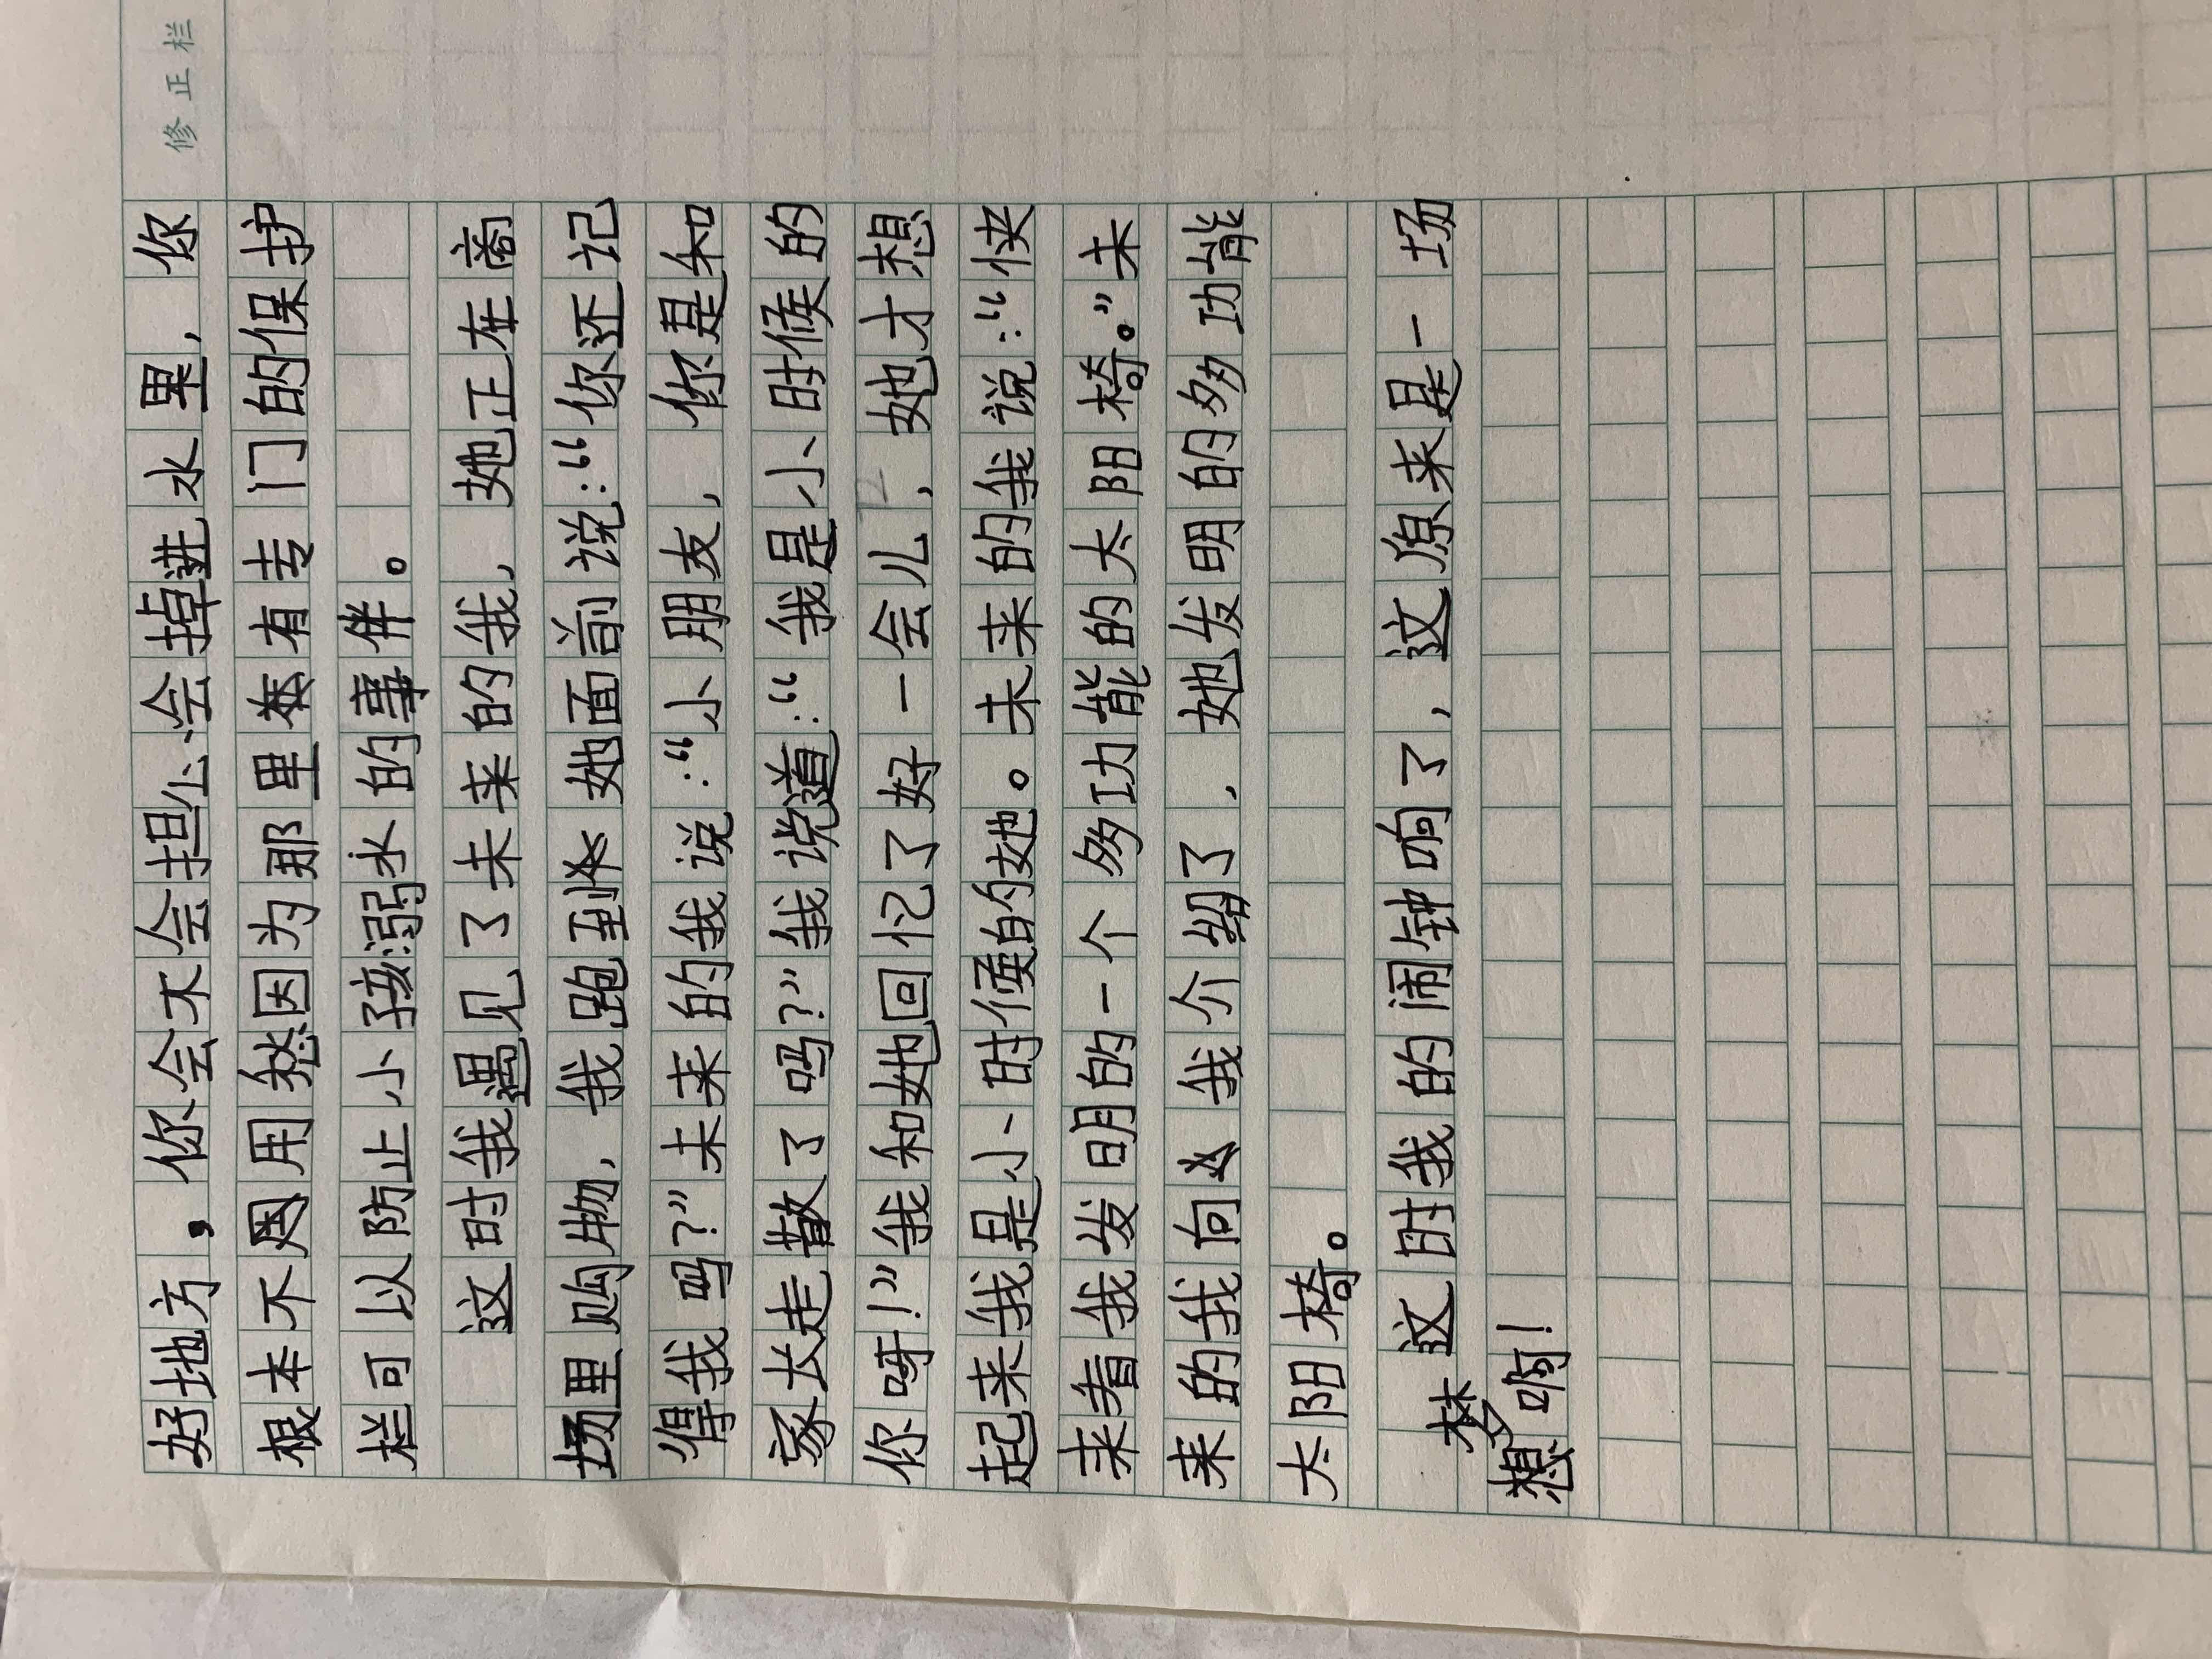 修正栏
好地方，你会不会担心会掉进水里，你
根本不用愁因为那里有专门的保护
栏可以防止小孩溺水的事件。
这时我遇见了未来的我，她正在商
场里购物，我跑到她面前说：“你还记
得我吗？”未来的我说：“小朋友，你是和
家长走散了吗？”我说道：“我是小时候的
你呀！”我和她回忆了好一会儿，她才想
起来我是小时候的她。未来的我说：“快
来看我发明的一个多功能的太阳椅。”未
来的我向我介绍了，她发明的多功能
太阳椅。
这时我的闹钟响了，这原来是一场
梦想啊！